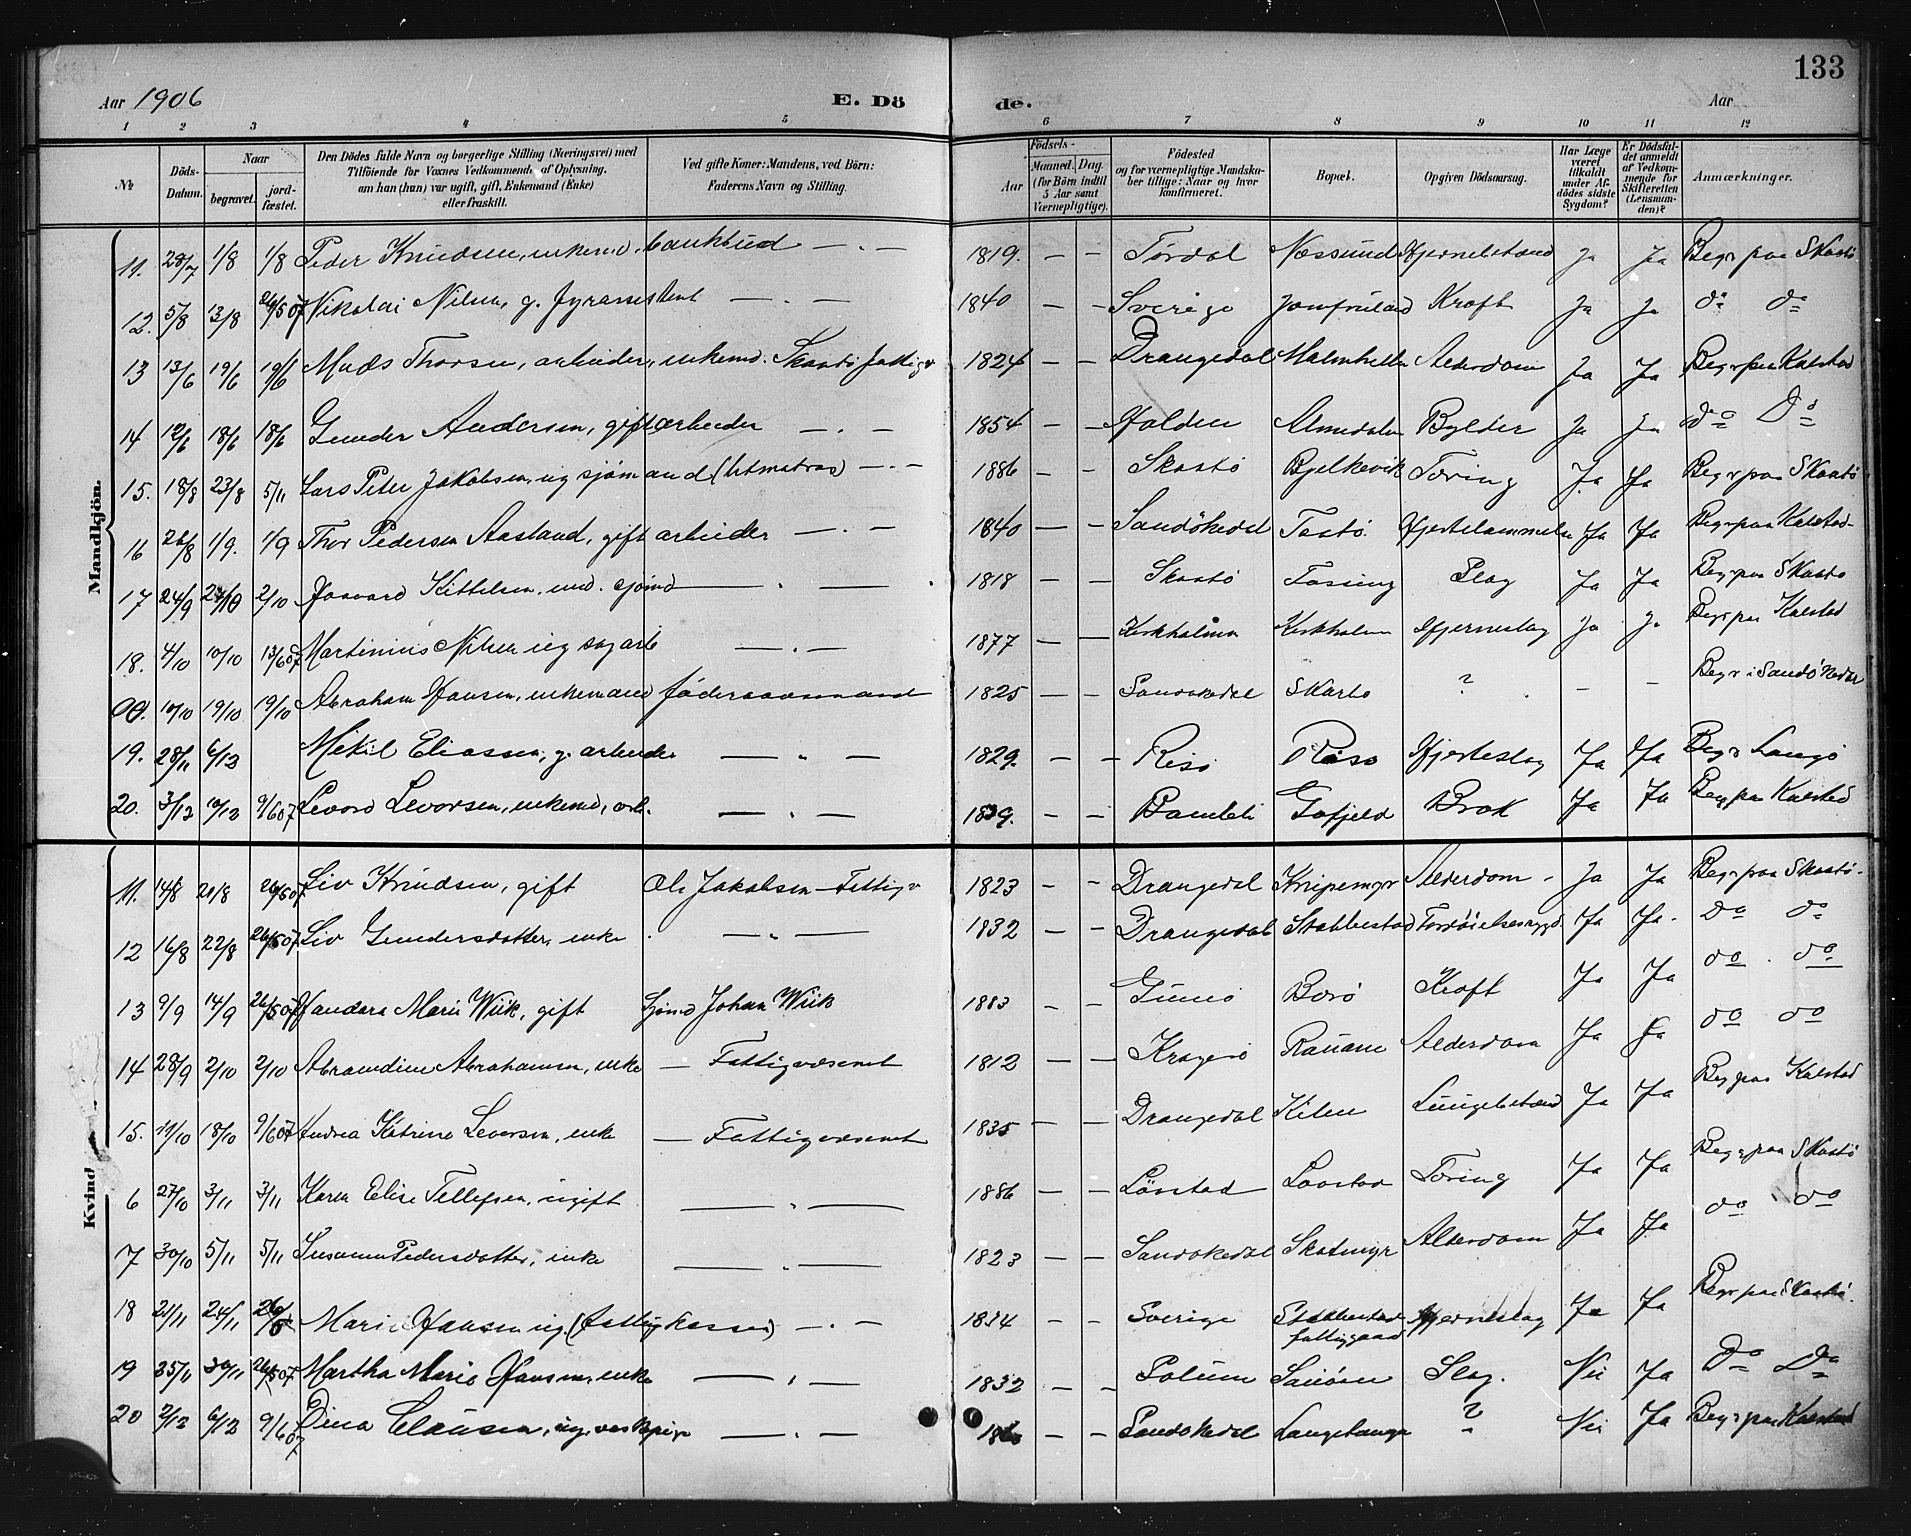 133
Aar 1906 E. Dö de. Aar
1 2 3 4 5 6 7 8 9 10 11 12
No. Döds-Datum. Naar begravet. jord-fæstet. Den Dödes fulde Navn og borgerlige Stilling (Næringsvei) med Tilföiende for Voxnes Vedkommende af Oplysning, om han (hun) var ugift, gift, Enkemand (Enke) eller fraskilt. Ved gifte Koner: Mandens, ved Börn: Faderens Navn og Stilling. Födsels- Aar Maaned. Dag. (for Börn indtil 5 Aar samt Værnepligtige). Födested og for værnepligtige Mandskaber tillige: Naar og hvor konfirmeret. Bopæl. Opgiven Dödsaarsag. Har Læge været tilkaldt under Afdödes sidste Sygdom? Er Dödsfaldet anmeldt af Vedkommende for Skifteretten (Lensmanden)? Anmærkninger.
Mandkjön.
11. 28/7 1/8 1/8 Peder Knudsen, enkemd. bankbud — . — 1819. — — Tördal Næssund Hjernebetænd Ja Ja Begr paa Skaatö
12. 5/8 13/8 26/5 07 Nikolai Nilsen, g. fyrassistent — . — 1840 — — Sverige Jomfruland Kræft Ja Ja do do
13 13/6 19/6 19/6 Mads Thorsen, arbeider, enkemd. Skaatö fattigv 1824 — — Drangedal Malmhella Alderdom Ja Ja Begr paa Kalstad
14 12/6 18/6 18/6 Gunder Andersen, gift arbeider — . — 1854 — — Halden Almedalen Bylder Ja Ja do Do
15. 18/8 23/8 5/11 Lars Peter Jakobsen, ug sjömand (letmatros) — . — 1886 — — Skaatö Bjelkevik Tæring Ja Ja Begr paa Skaatö
16 26/8 1/9. 1/9 Thor Pedersen Aasland, gift arbeider — . — 1840 — — Sandökedal Taatö. Hjertelammelse Ja Ja Begr paa Kalstad
17 24/9 2/10 Kittelsen. sjömd — . — 1818 — — Skaatö Slag Ja Ja Begr paa Skaatö
18. 4/10 10/10 13/6 07 Martinius Nilsen ug sagarb — . — 1877 — — Kirkholmen Kirkholmen Hjerneslag Ja Ja Begr paa Kalstad
00. 10/10 19/10 19/10 Abraham Hansen, enkemand föderaadsmand 1825 — — Sandökedal Skaatö ? . — — Begr i Sandökedal
19. 28/11 6/12 Mikil Eliassen, g. arbeider — " — 1829. — — Risö Risö Hjerteslag Ja Ja Begr Langö
20. 3/12 10/12 9/6 07 Levord Levorsen, enkemd, arb. — " — 1839. — — Bamble Gofjeld Brok Ja Ja Begr paa Kalstad
Kvind
11. 14/8 21/8 26/5 07 Liv Knudsen, gift Ole Jakobsen — Fattigv 1823 — — Drangedal Knipemyr Alderdom Ja Ja Begr paa Skaatö.
12 16/8 22/8 26/5 07 Liv Gundersdatter, enke — " — 1832 — — Drangedal Stabbestad Ja Ja. Do do
13 9/9 14/9 26/5 07 Marie Wiik, gift Sjömd Johan Wiik 1883 — — Gumö Borö Kræft Ja Ja do . do
14 28/9 2/10 2/10 Abramdine Abrahamsen, enke — Fattigvæsenet 1812 — — Kragerö Alderdom Ja Ja do do
15. 11/10 18/10 9/6 07 Andrea Katrine Levorsen, enke — Fattigvæsenet 1835 — — Drangedal Kilen Lungebetænd Ja Ja Beg paa Kalstad
6 27/10 3/11 3/11 Karen Elise Tellefsen, ugift — " — 1886 — — Lövstad Lovstad Tæring Ja Ja Begr paa Skaatö
17 30/10 5/11 5/11 Susanna Pedersdatter, enke — " — 1823 — — Sandökedal Skatmyr Alderdom Ja Ja do do
18 21/11 24/11 26/5 Marie Hansen ug. (fattigkassen) — . — 1834 — — Sverige Stabbestad fattiggaard Hjerneslag Ja Ja Begr paa Skaatö.
19 25/11 30/11 26/5 07 Martha Marie Hansen, enke — " — 1832 — — Solum Slag. Nei Ja Do Do
20 2/12 6/12 9/6 07 Dina Clausen, ug. — . — — — Sandökedal Langetangen ? " Nei Ja Begr paa Kalstad